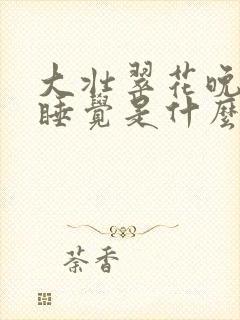 大壮翠花晚
睡覺是什麼
荼香